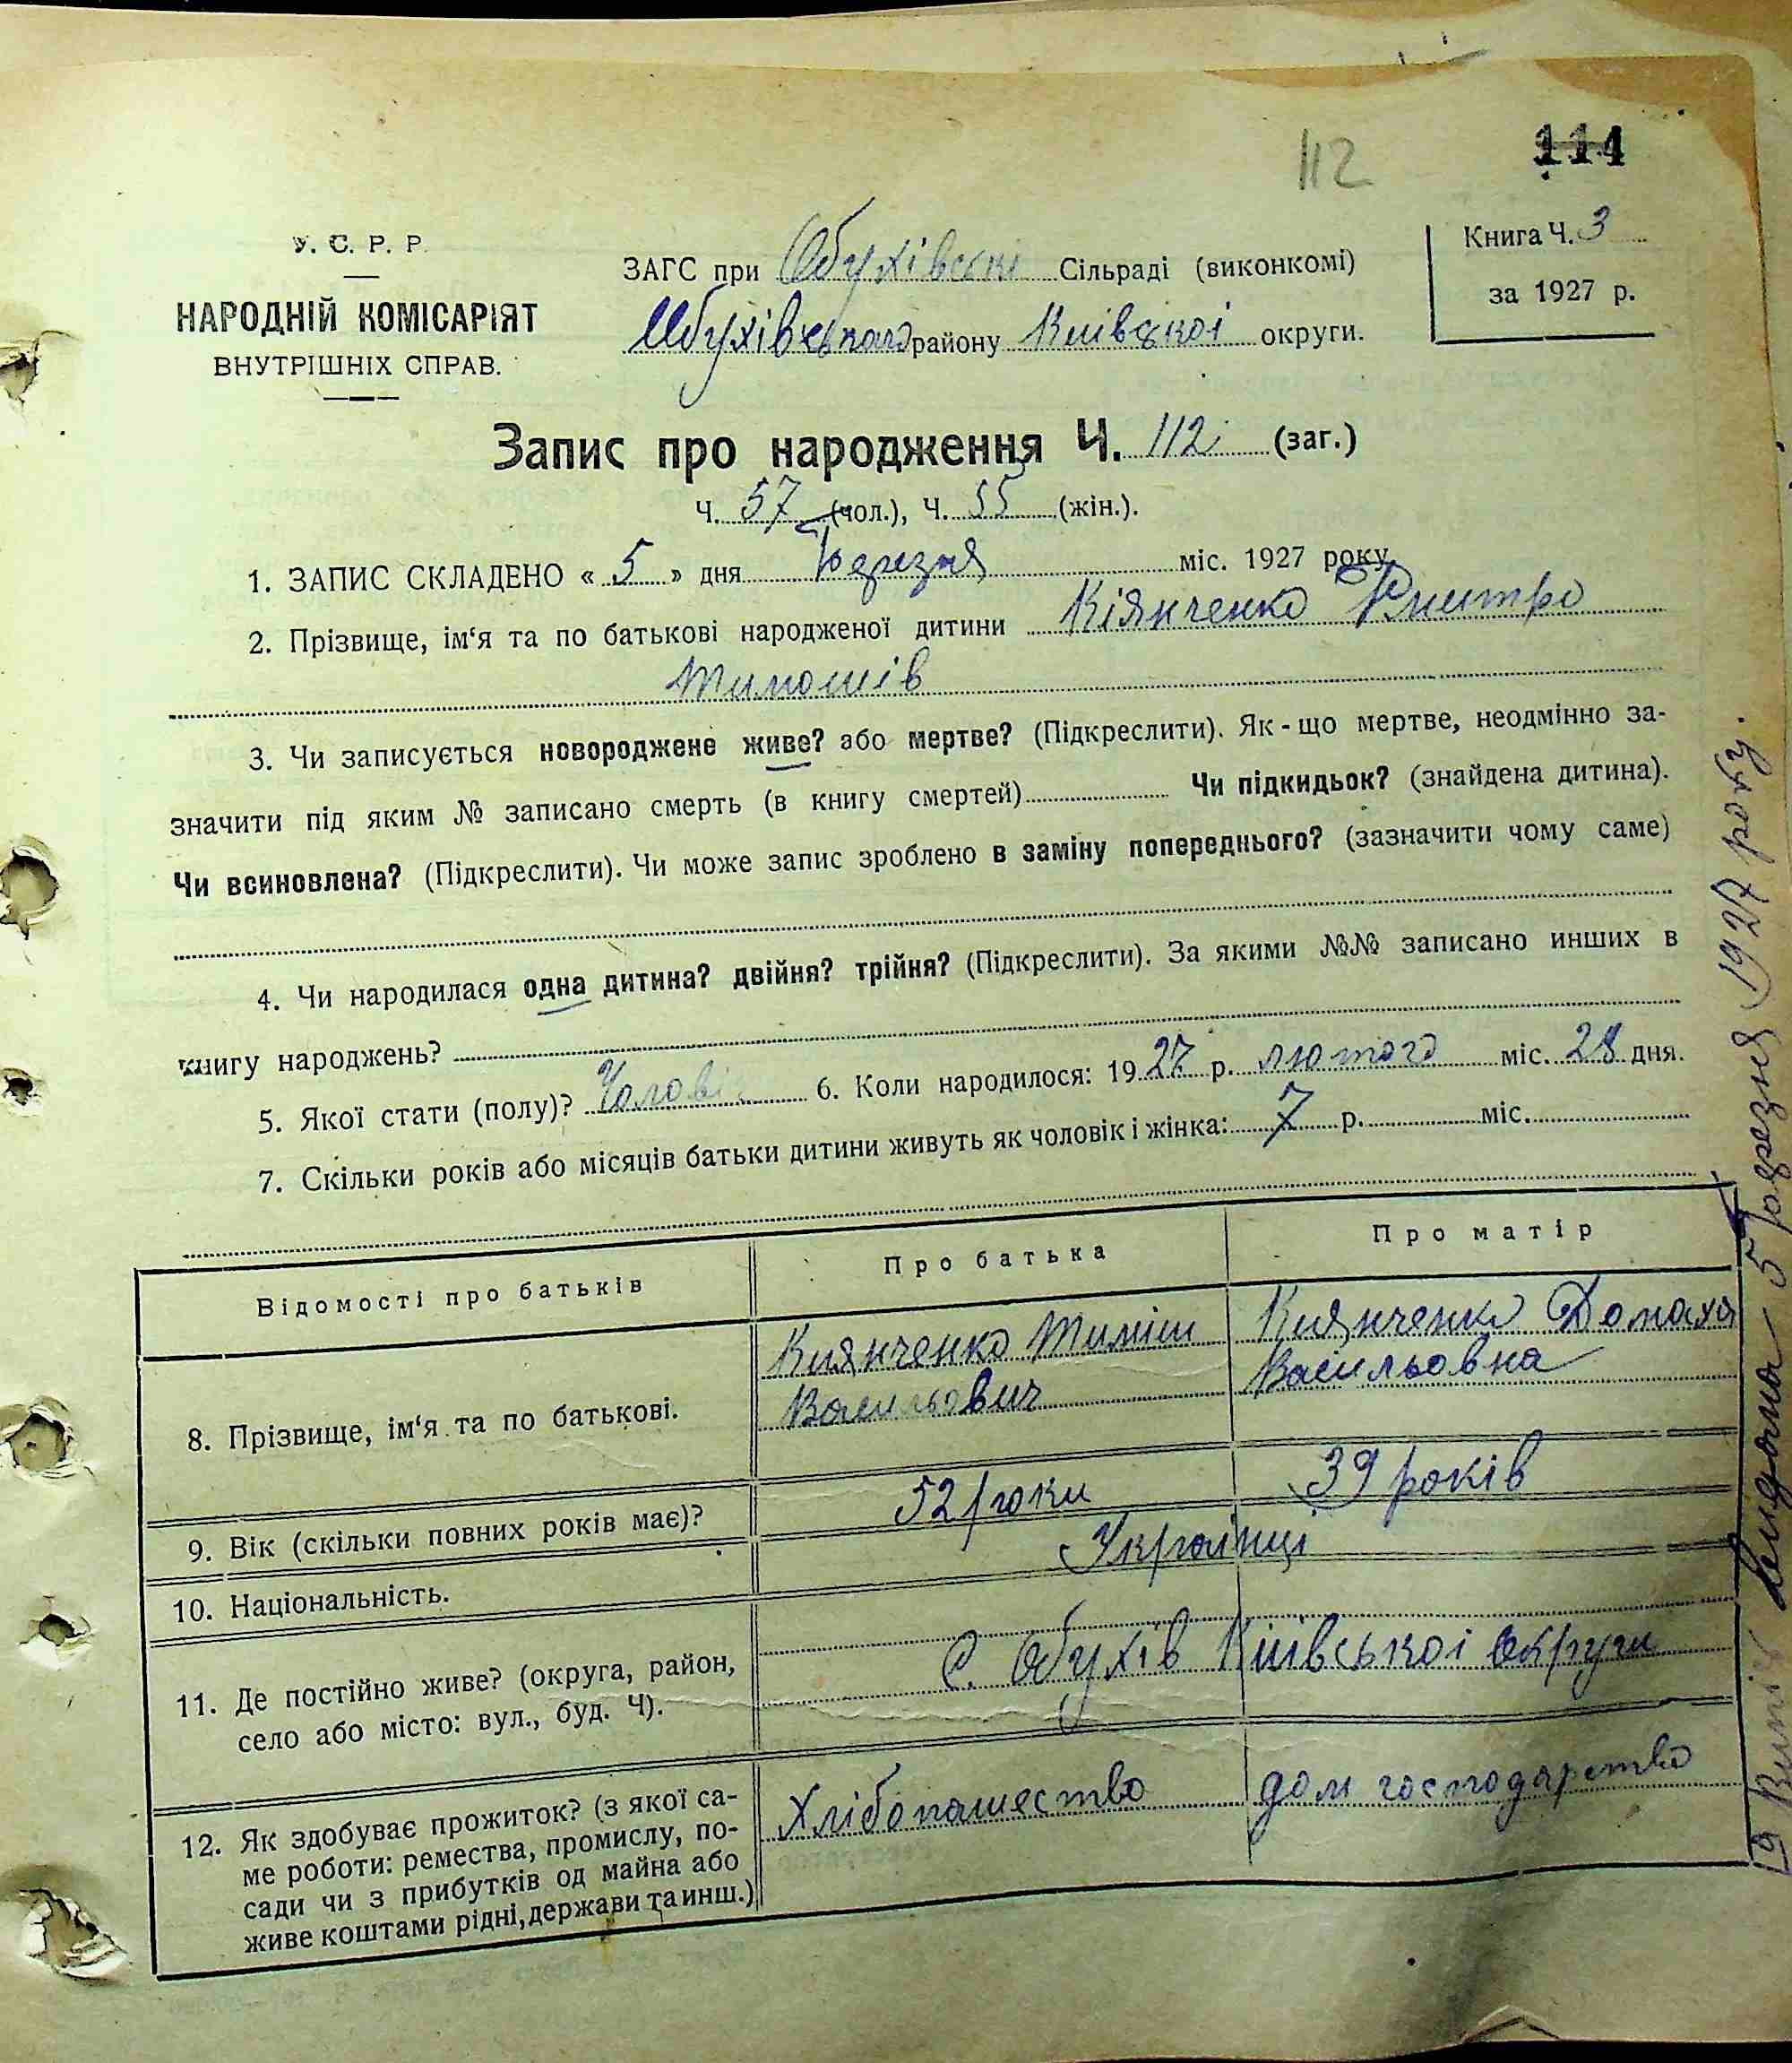 112
114
У. С. Р. Р.
НАРОДНІЙ КОМІСАРІЯТ
ВНУТРІШНІХ СПРАВ.
ЗАГС при Обухівські Сільраді (виконкомі)
Обухівського району Київської округи.
Книга Ч. 3
за 1927 р.
Запис про народження Ч. 112 (заг.)
Ч. 57 (чол.), Ч. 55 (жін.).
1. ЗАПИС СКЛАДЕНО « 5 » дня березня міс. 1927 року
2. Прізвище, ім‘я та по батькові народженої дитини Кіянченко Дмитро
Тимошів
3. Чи записується новороджене живе? або мертве? (Підкреслити). Як-що мертве, неодмінно за-
значити під яким № записано смерть (в книгу смертей) Чи підкидьок? (знайдена дитина).
Чи всиновлена? (Підкреслити). Чи може запис зроблено в заміну попереднього? (зазначити чому саме)
4. Чи народилася одна дитина? двійня? трійня? (Підкреслити). За якими №№ записано инших в
книгу народжень?
5. Якої стати (полу)? 6. Коли народилося: 1927 р. лютого міс. 28 дня.
7. Скільки років або місяців батьки дитини живуть як чоловік і жінка: 7 р. міс.
Відомості про батьків
Про батька
Про матір
8. Прізвище, ім‘я та по батькові.
Киянченко Тиміш
Васильович
Киянченко Домаха
Васильовна
9. Вік (скільки повних років має)?
52 роки
39 років
10. Національність.
Українці
11. Де постійно живе? (округа, район,
село або місто: вул., буд. Ч).
С. Обухів Київської округи
12. Як здобуває прожиток? (з якої са-
ме роботи: ремества, промислу, по-
сади чи з прибутків од майна або
живе коштами рідні, держави та инш.)
Хлібопашество
дом господарство
Витяг видано 5 березня 1927 року.